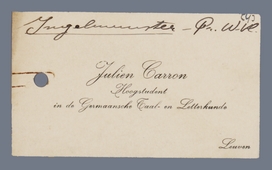 Ingelmunster – Pr. W. Vl.
Julien Carron
Hoogstudent
in de Germaansche Taal- en Letterkunde
Leuven